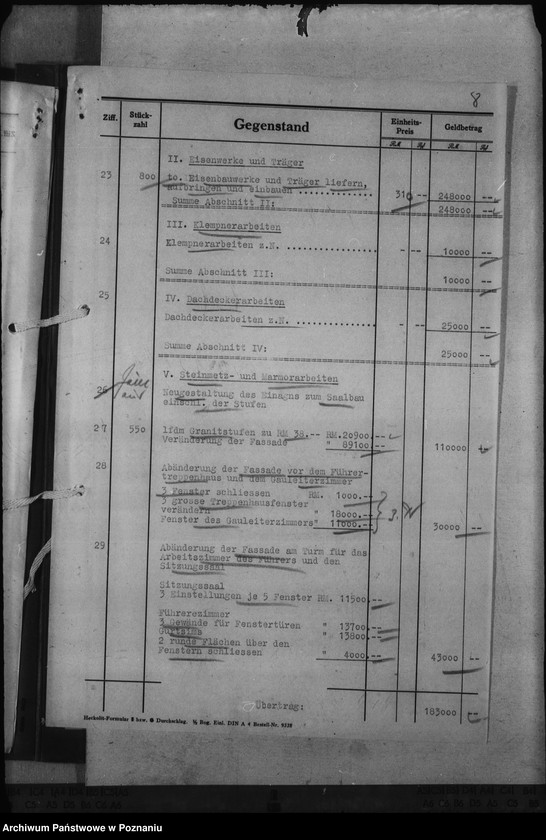 8
Ziff. Stück-zahl Gegenstand Einheits-Preis Geldbetrag
RM Pf RM Pf
II. Eisenwerke und Träger
23 800 to. Eisenbauwerke und Träger liefern,
aufbringen und einbauen ............ 310 -- 248000 --
Summe Abschnitt II: 248000 --
III. Klempnerarbeiten
24 Klempnerarbeiten z.N. ............... - -- 10000 --
Summe Abschnitt III: 10000 --
25 IV. Dachdeckerarbeiten
Dachdeckerarbeiten z.N. ............. - -- 25000 --
Summe Abschnitt IV: 25000 --
V. Steinmetz- und Marmorarbeiten
26 Neugestaltung des Einangs zum Saalbau
einschl. der Stufen
27 550 lfdm Granitstufen zu RM 38.-- RM.20900.--
Veränderung der Fassade " 89100.-- 110000 --
28 Abänderung der Fassade vor dem Führer-
treppenhaus und dem Gauleiterzimmer
3 Fenster schliessen RM. 1000.--
3 grosse Treppenhausfenster
verändern " 18000.--
Fenster des Gauleiterzimmers " 11000.-- 30000 --
29 Abänderung der Fassade am Turm für das
Arbeitszimmer des Führers und den
Sitzungssaal
Sitzungssaal
3 Einstellungen je 5 Fenster RM. 11500.--
Führerzimmer
3 Gewände für Fenstertüren " 13700.--
" 13800.--
2 runde Flächen über den
Fenstern schliessen " 4000.-- 43000 --
Übertrag: 183000 --
Archiwum Państwowe w Poznaniu